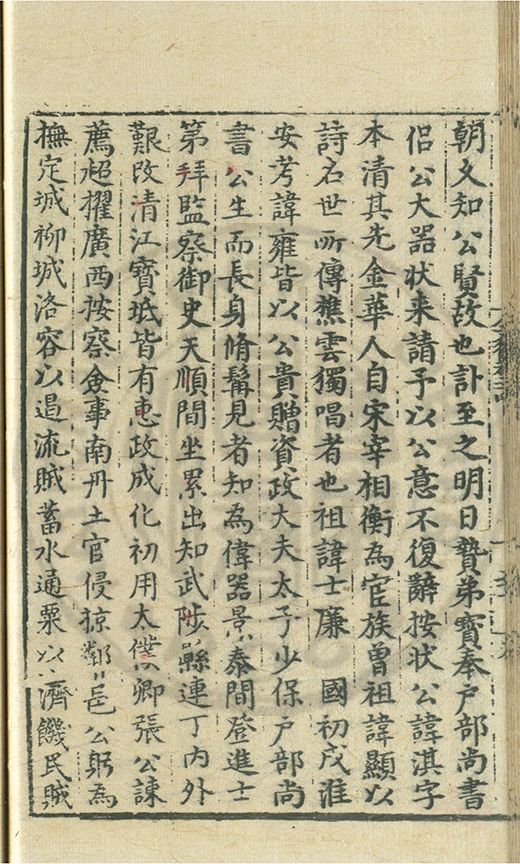 朝久知公賢故也訃至之明日贄弟寶奉戶部尚書
侶公大器狀来請予以公意不復辭按狀公諱淇字
本清其先金華人自宋宰相衡為宦族曾祖諱顯以
詩名世所傳樵雲獨唱者也祖諱士廉　國初戍淮
安考諱雍皆以公貴贈資政大夫太子少保戶部尚
書公生而長身脩髯見者知為偉器景泰間登進士
第拜監察御史天順間坐累出知武陟縣連丁内外
艱改清江寶坻皆有惠政成化初用太僕卿張公諫
薦超擢廣西按察僉事南丹土官侵掠鄰邑公躬為
撫定城柳城洛容以遏流賊蓄水通粟以濟饑民賊